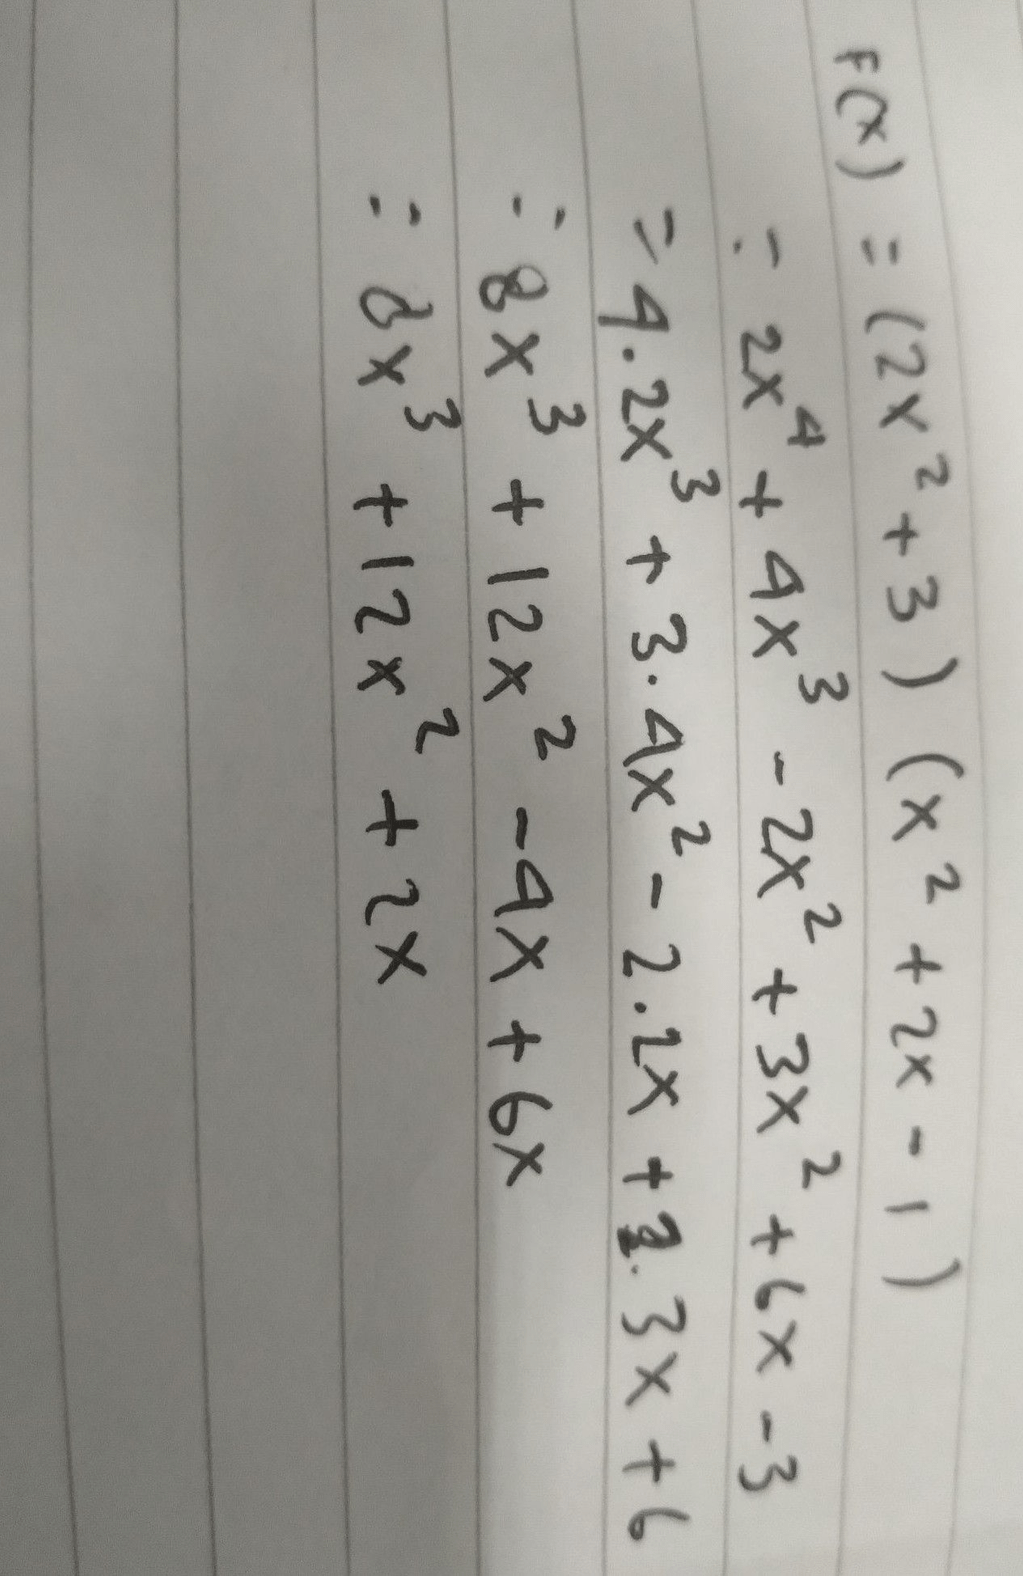 F(x) = (2x² + 3) (x² + 2x - 1)
= 2x⁴ + 4x³ - 2x² + 3x² + 6x - 3
= 4.2x³ + 3.4x² - 2.2x + 2.3x + 6
= 8x³ + 12x² - 4x + 6x
= 8x³ + 12x² + 2x